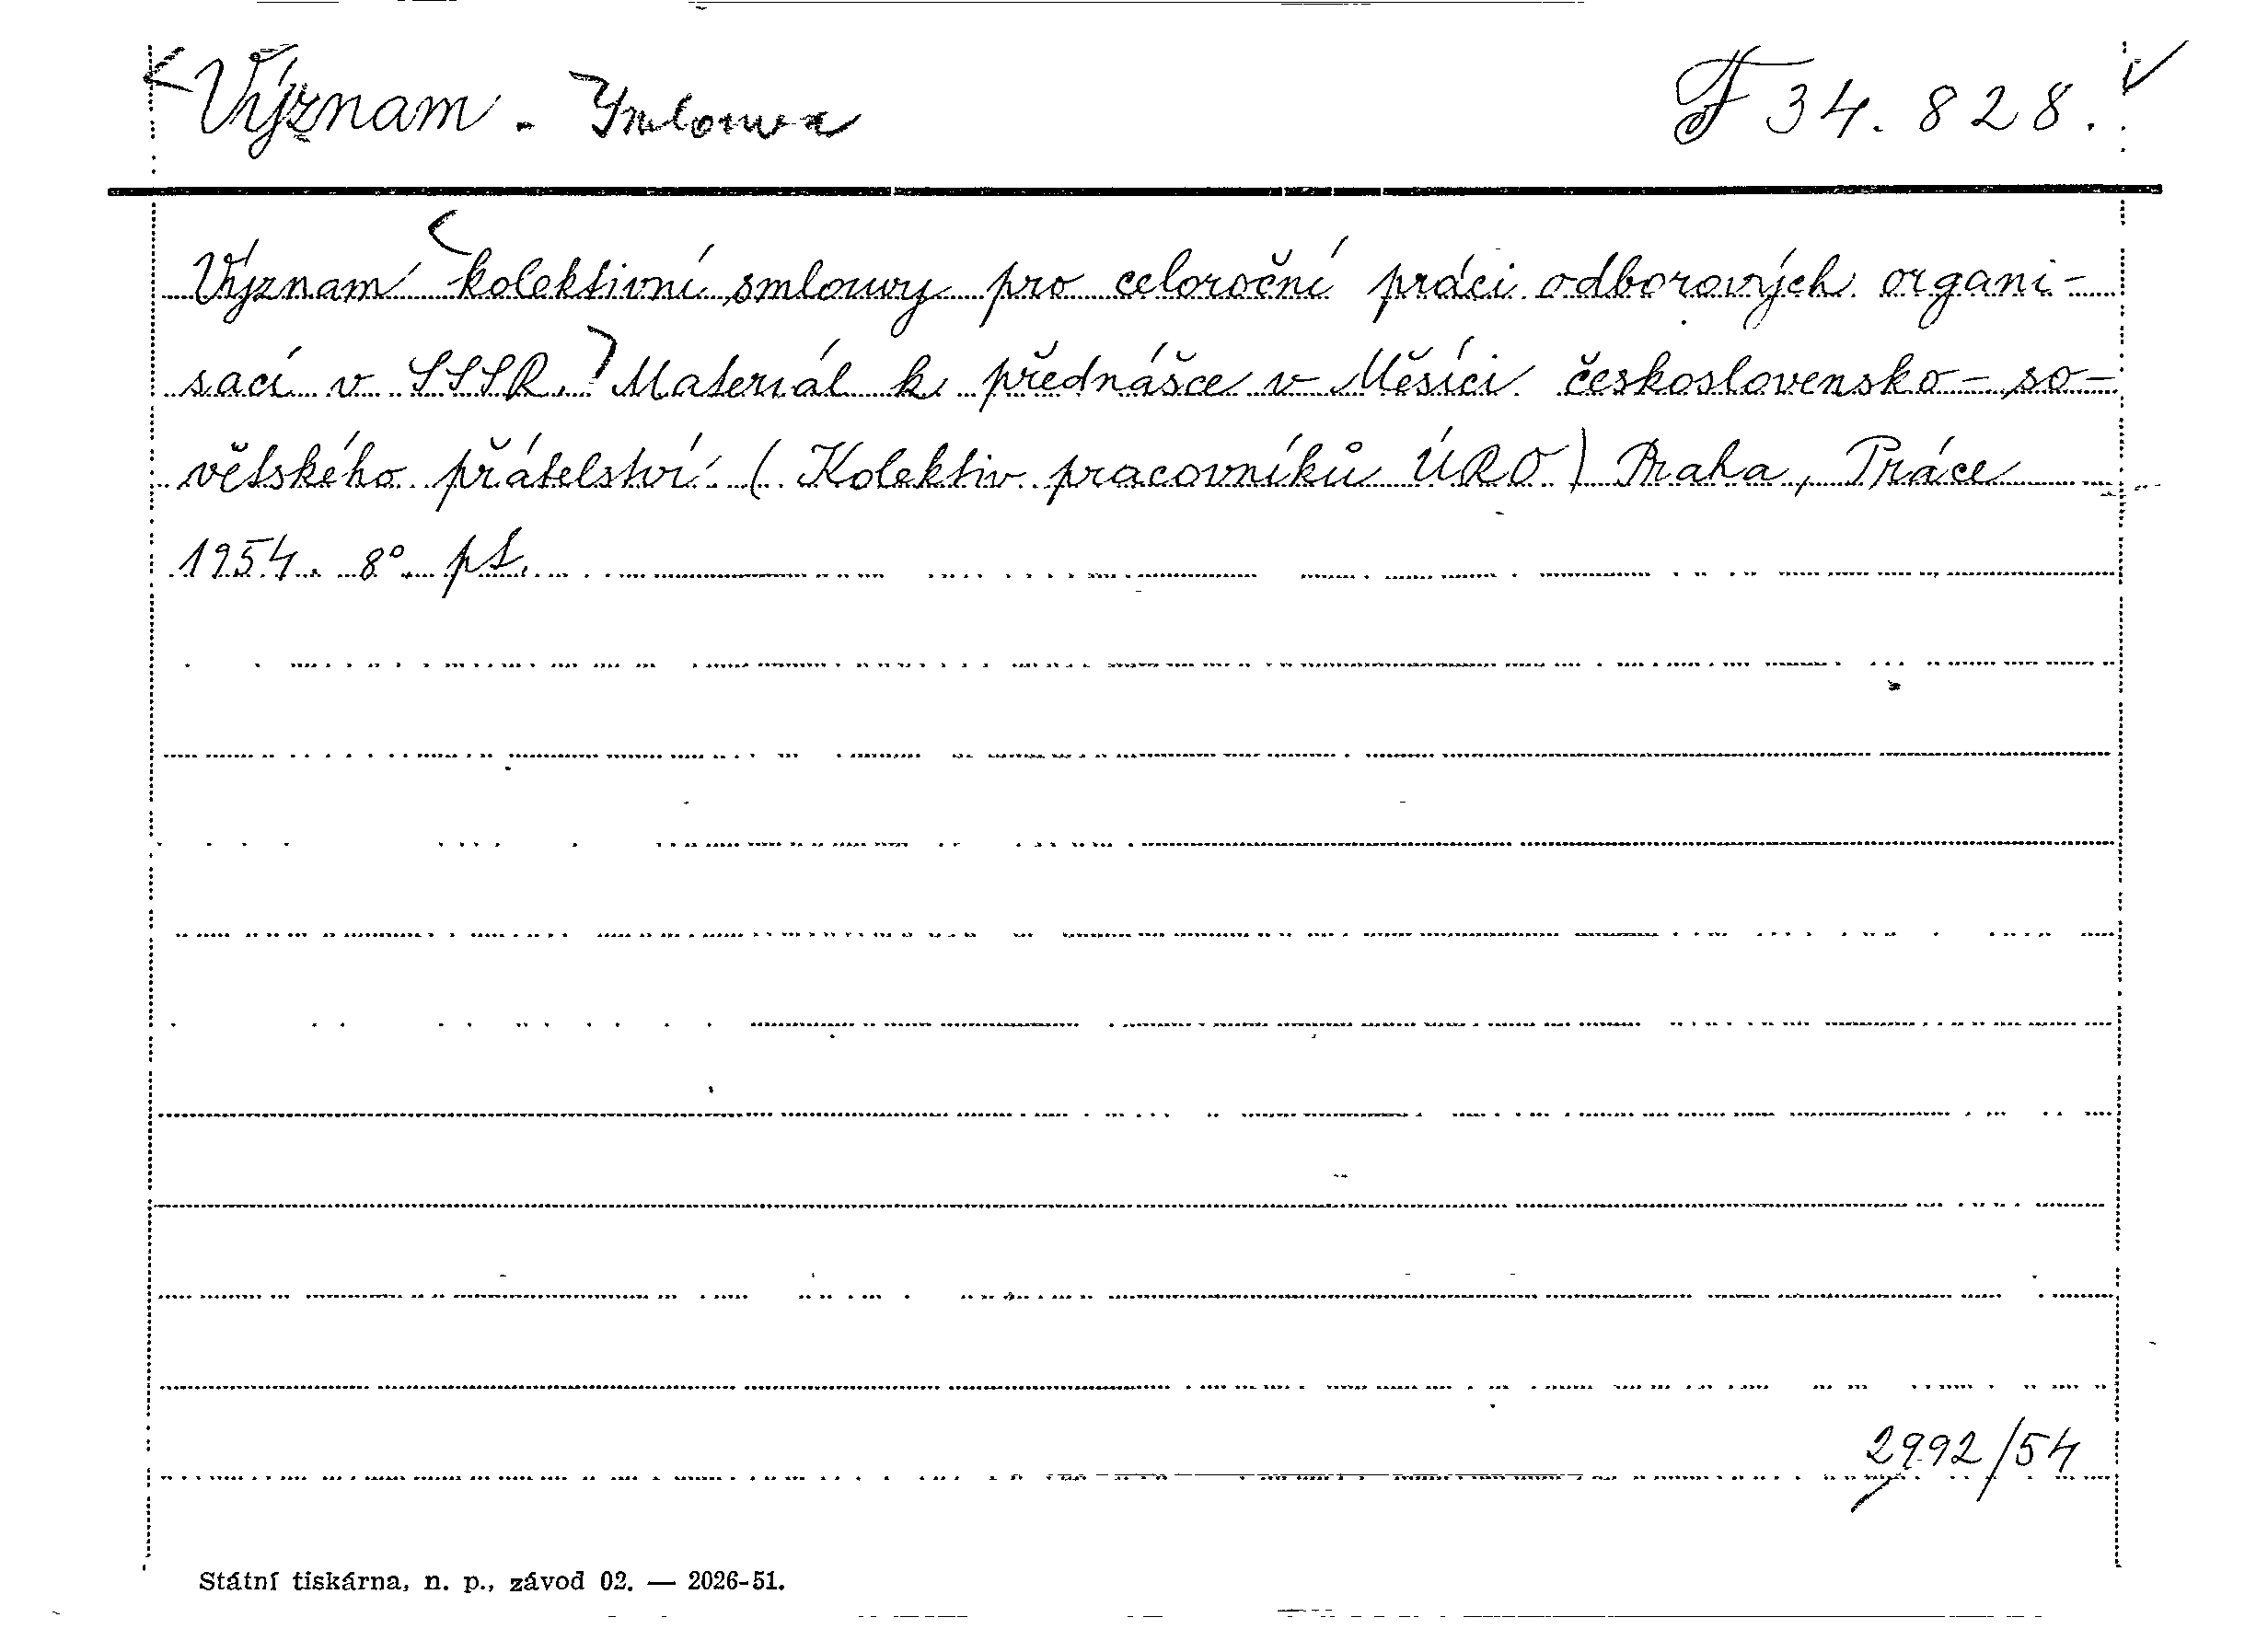 Význam - Smlouva F 34.828.
Význam kolektivní smlouvy pro celoroční práci odborových organi-
sací v SSSR. Materiál k přednášce v Měsíci československo-so-
větského přátelství (Kolektiv pracovníků ÚRO) Praha, Práce
1954. 8° pt.
2992/54
Státní tiskárna, n. p., závod 02. — 2026-51.